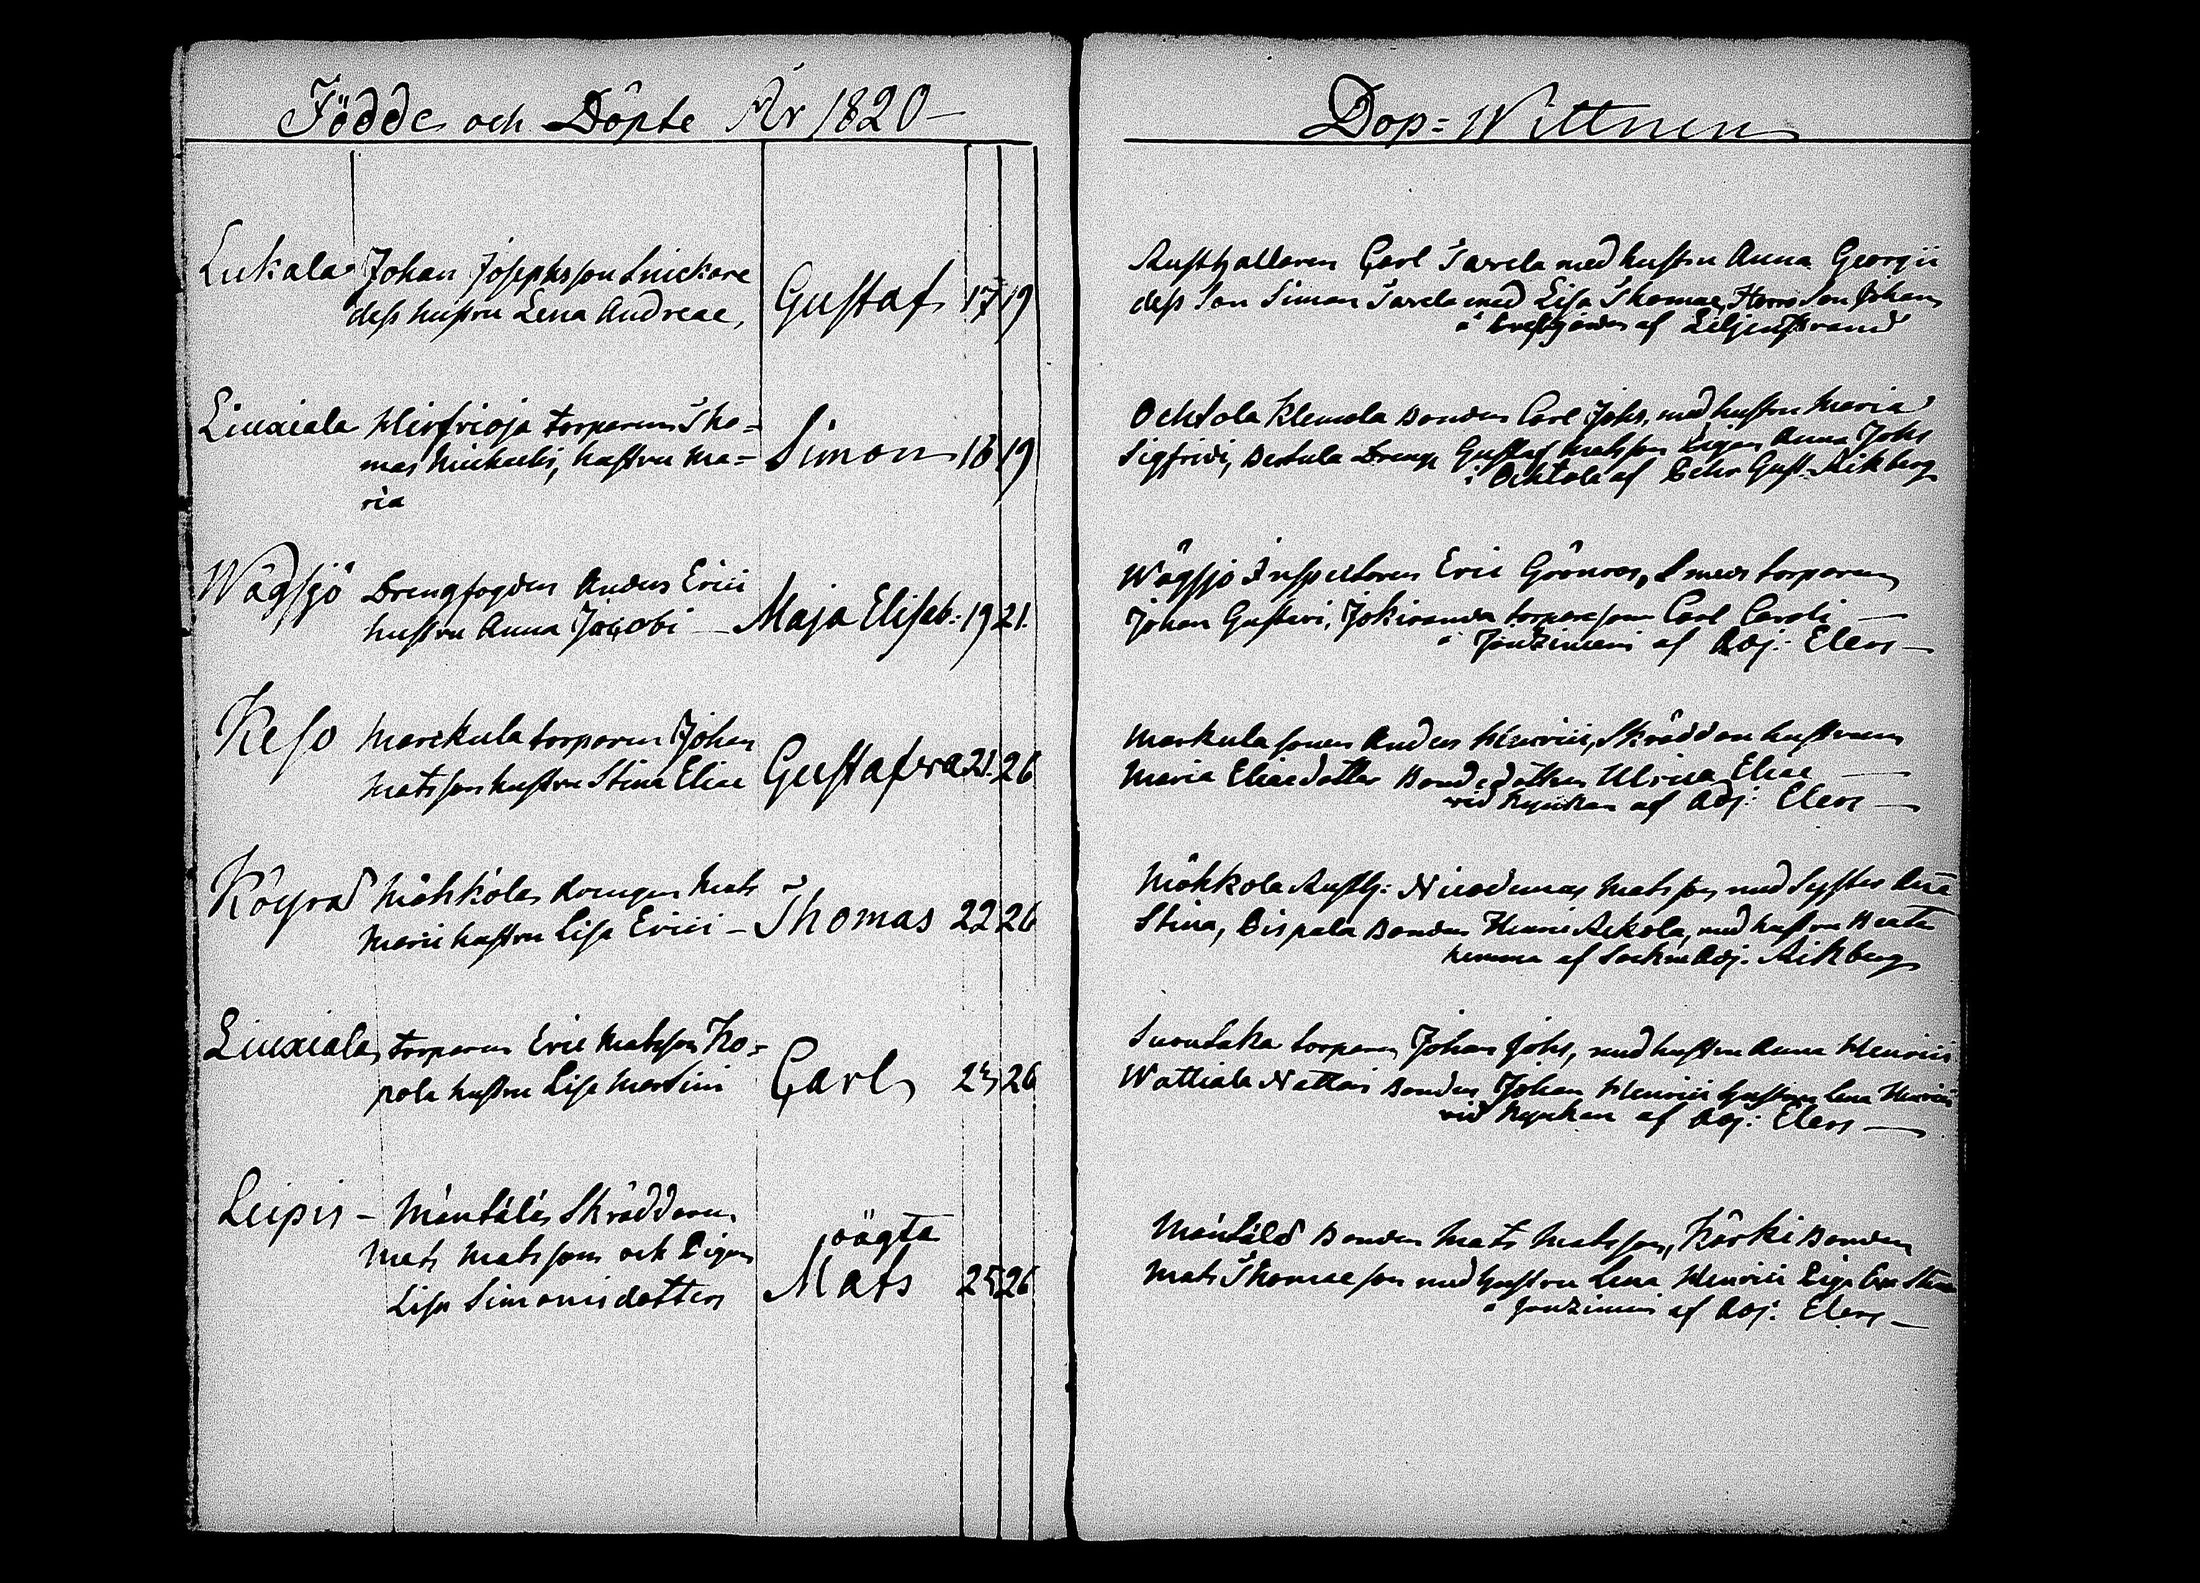 Födde och Döpte År 1820 –
Lukala Johan Josephsson Snickare
dess hustru Lena Andreae,
Gustaf 17 19
Liuxiala Hirsioja torparen Tho=
mas Michaelis, hustru Ma=
ria
Simon 18 19
Wägsjö Drengfogden Anders Erici
hustru Anna Jacobi — Maja Elisab: 19 21.
Keso Markula torparen Johan
Matsson hustru Stina Eliae
Gustafva 21. 26
Köyrä Möhkölä drengen Mats
hustru Lisa Erici –
Thomas 22 26
Liuxiala, torparen Eric Matsson Ko=
pola hustru Lisa Martini
Carl 23 26
Leipis – Mäntälä Skräddaren
Mats Matsson och Pigan
Lisa Simonisdotters
oägta
Mats 25 26
Dop=Wittnen
Rusthållaren Carl Tavela med hustru Anna Georgii
dess Son Simon Tavela med Lisa Thomae, Herr Son Johan
af Liljenstrand
Ochtola Klemola Bonden Carl Johs, med hustru Maria
Sigfridi, Dreng Gustaf Matsson Pigan Anna Johs
i Ochtola af Gust. Aikberg
Wägsjö Inspectoren Eric Grönroos, Smeds torparen
Johan Gustavi, Jokiranda torpareson Carl Caroli —
af Adj: Elers —
Markula sonen Anders Henrici, Skräddare hustrun
Maria Eliaedotter Bondedottern Ulrica Eliae —
vid Kyrkan af Adj: Elers —
Möhkola Rusth: Nicodemus Matsson med Syster Ana
Stina, Pispala Bonden Henric Arkola, med hustru Beata
hemma af Adj. Aikberg
Suontaka torparen Johan Johs, med hustru Anna Henrici
Wattiala Nattari Bonden Johan Henrici hustrun Lena Henrici
vid Kyrkan af Adj: Elers —
Mäntälä Bonden Mats Matsson, Kärki Bonden
Mats Thomaeson med hustru Lena Henrici Piga
af Adj: Elers —